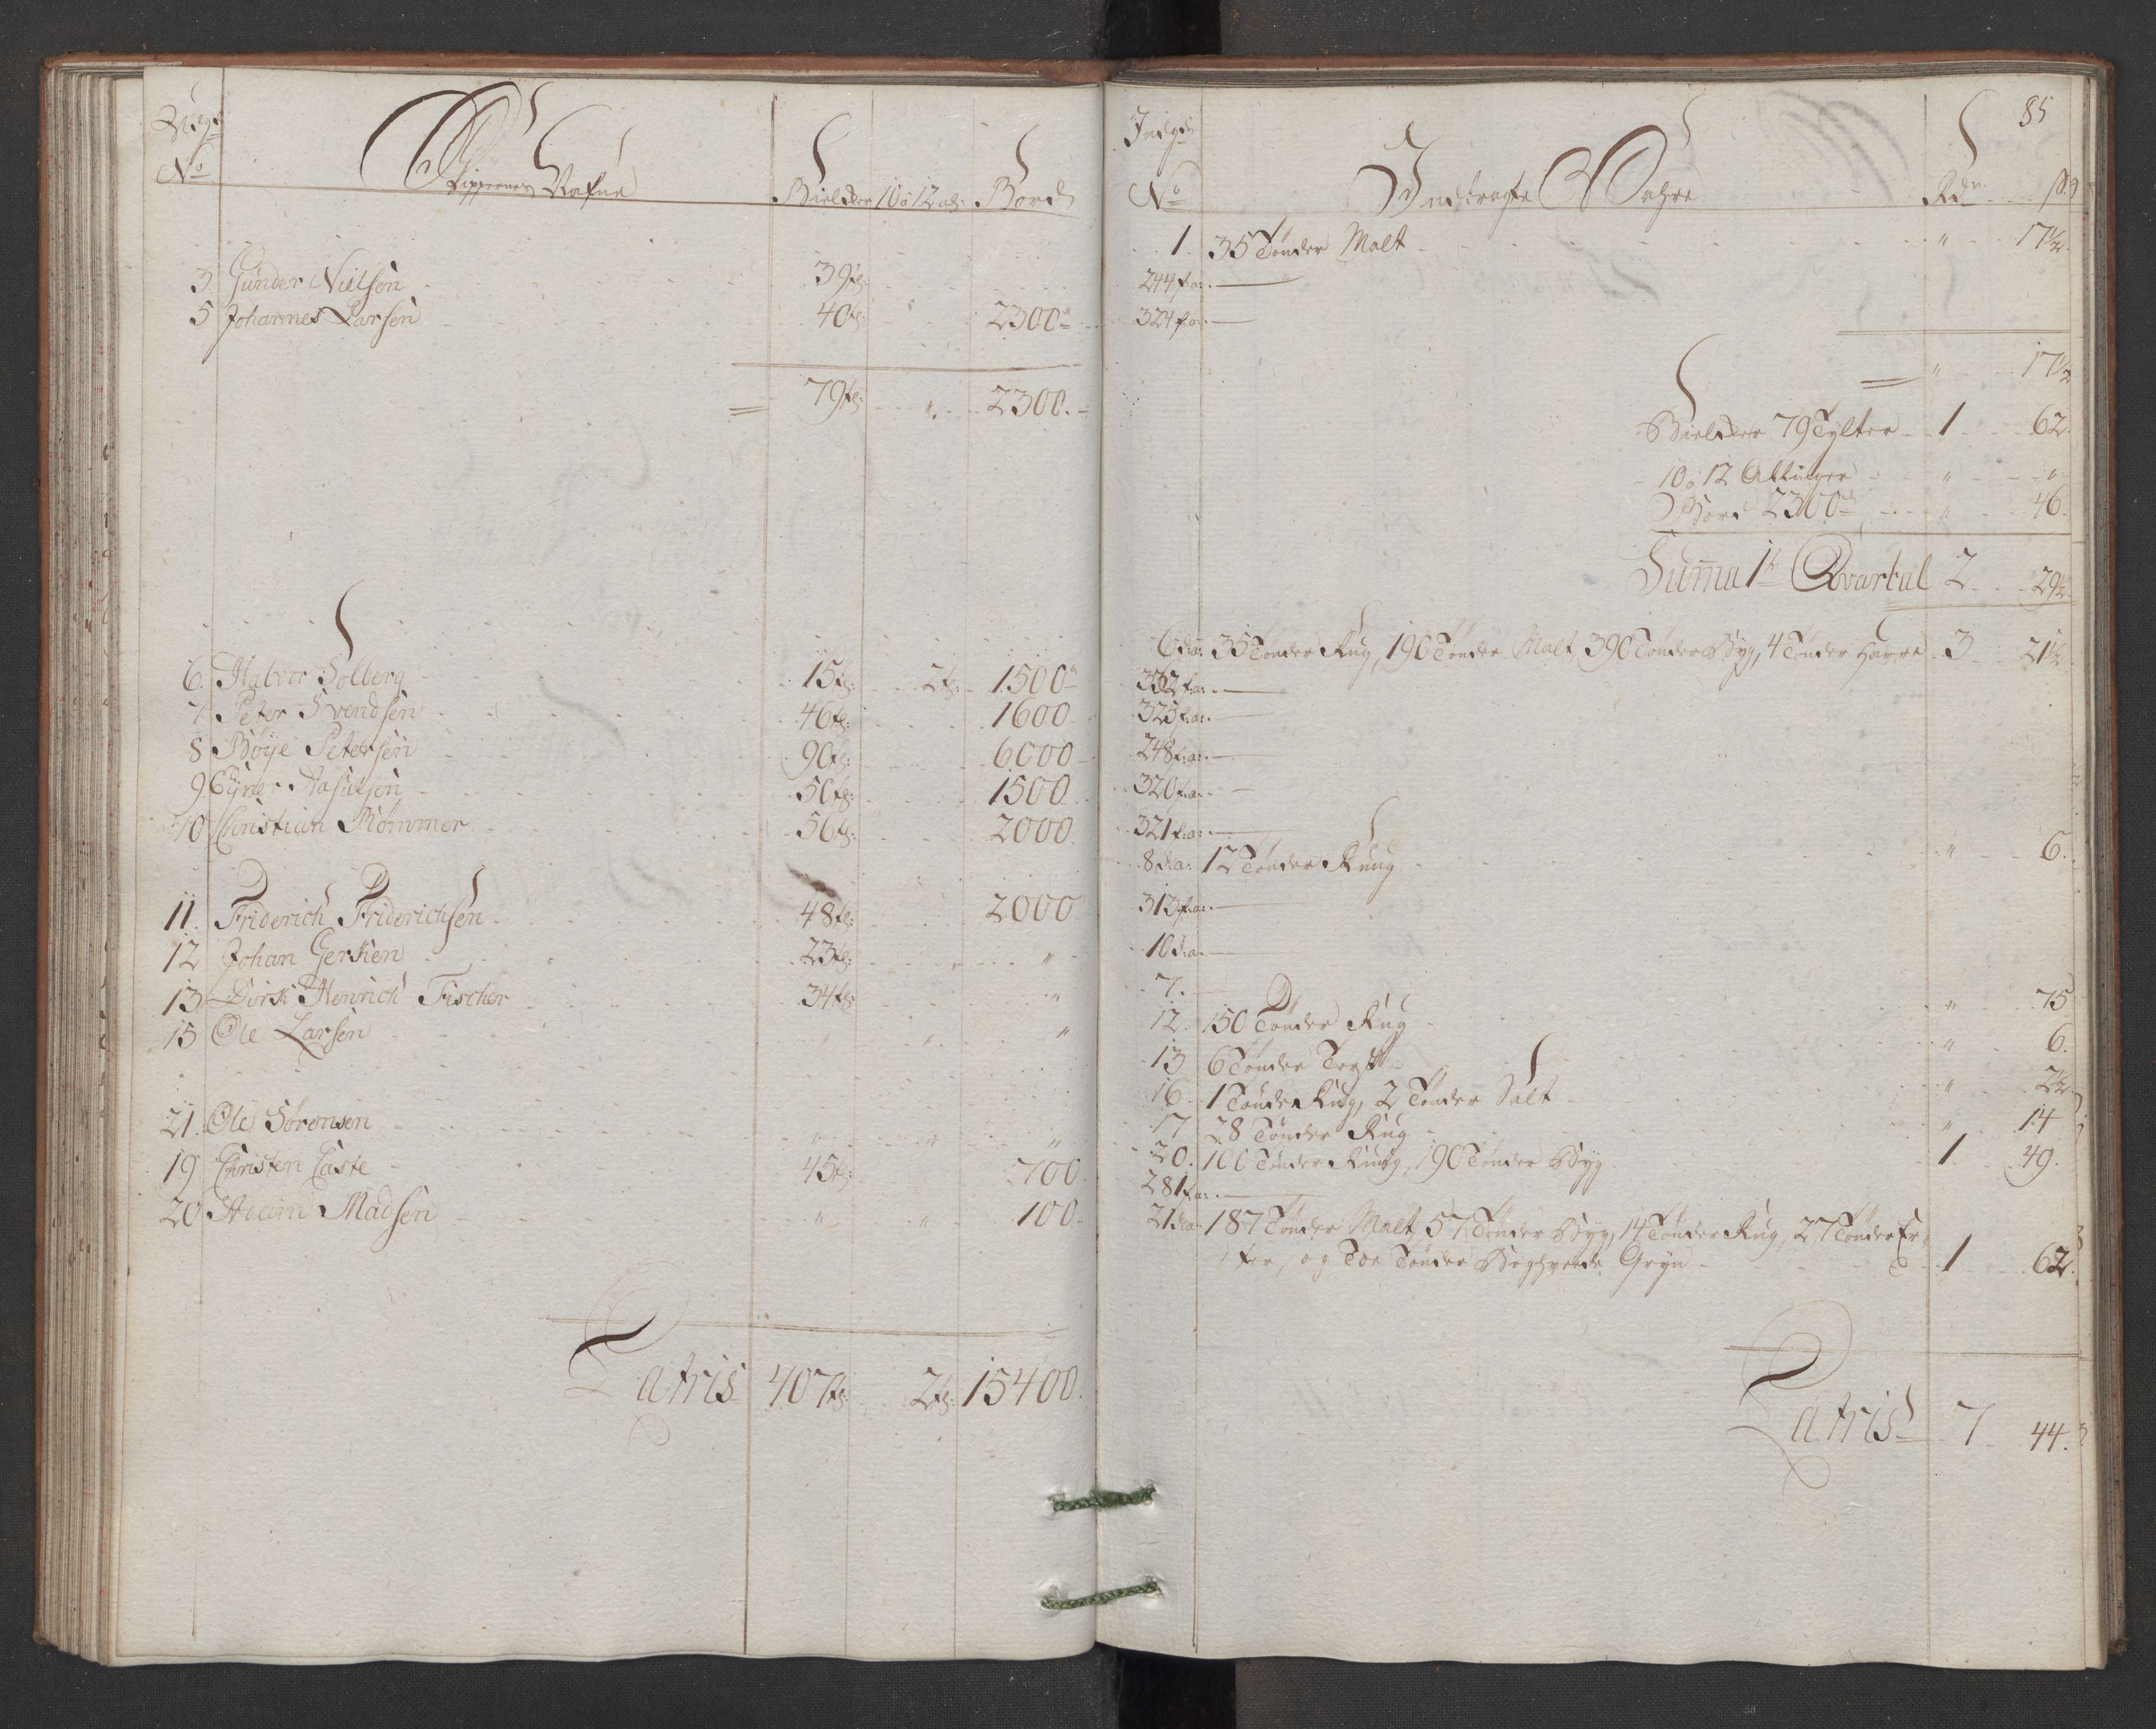 Udg:
No
Skippernes Nafne
Bielcker
10 a 12 al:
Bord
3. Gunder Nielsen 39 tl:
5 Johannes Larsen 40 tl: 2300
79 tl: " 2300.
6. Halvor Solberg 15 tl: 2 tl: 1500
7 Peter Svendsen 46 tl: 1600
8 Böye Petersen 90 tl: 6000
9 Eyner Aasulsen 50 tl: 1500
10 Christian Römmer 56 tl: 2000
11. Friderich Friderichsen 48 tl: 2000
12 Johan Gerken 23 tl: "
13 Dirk Henrich Fischer 34 tl: "
15 Ole Larsen " " "
21. Ole Sörensen " " "
19 Christen Caste 45 tl: 700
20 Adam Madsen " " 100
Latris 407 tl: 2 tl: 15400.
85
Indg:
No
Indbragte Vahre
Rdr
1. 35 Tönder Malt " 17½
244 f.a:
324 f.a:
" 17½
Bielcker 79 Tylter 1 62
10 a 12 Alninger " "
Bord 2300 " 46.
Summa 1te Qvartal 2 29½
6 d.a: 35 Tönder Rug, 190 Tönder Malt, 390 Tönder Byg, 4 Tönder Havre 3 21½
332 f.a:
323 f.a:
248 f.a:
320 f.a:
321 f.a:
8 d.a: 12 Tönder Rug " 6.
313 f.a:
10 d.a:
7.
12. 150 Tönder Rug " 75
13 6 Tönder " 6.
16 1 Tönde Rug, 2 Tönder Salt " 2½
17 28 Tönder Rug " 14
20. 100 Tönder Rug, 190 Tönder Byg 1 49.
281 f.a:
21 d.a: 187 Tönder Malt, 57 Tönder Byg, 14 Tönder Rug, 27 Tönder Er=
ter, og Toe Tönder Boghvede Gryn 1 62.
Latris 7 44.